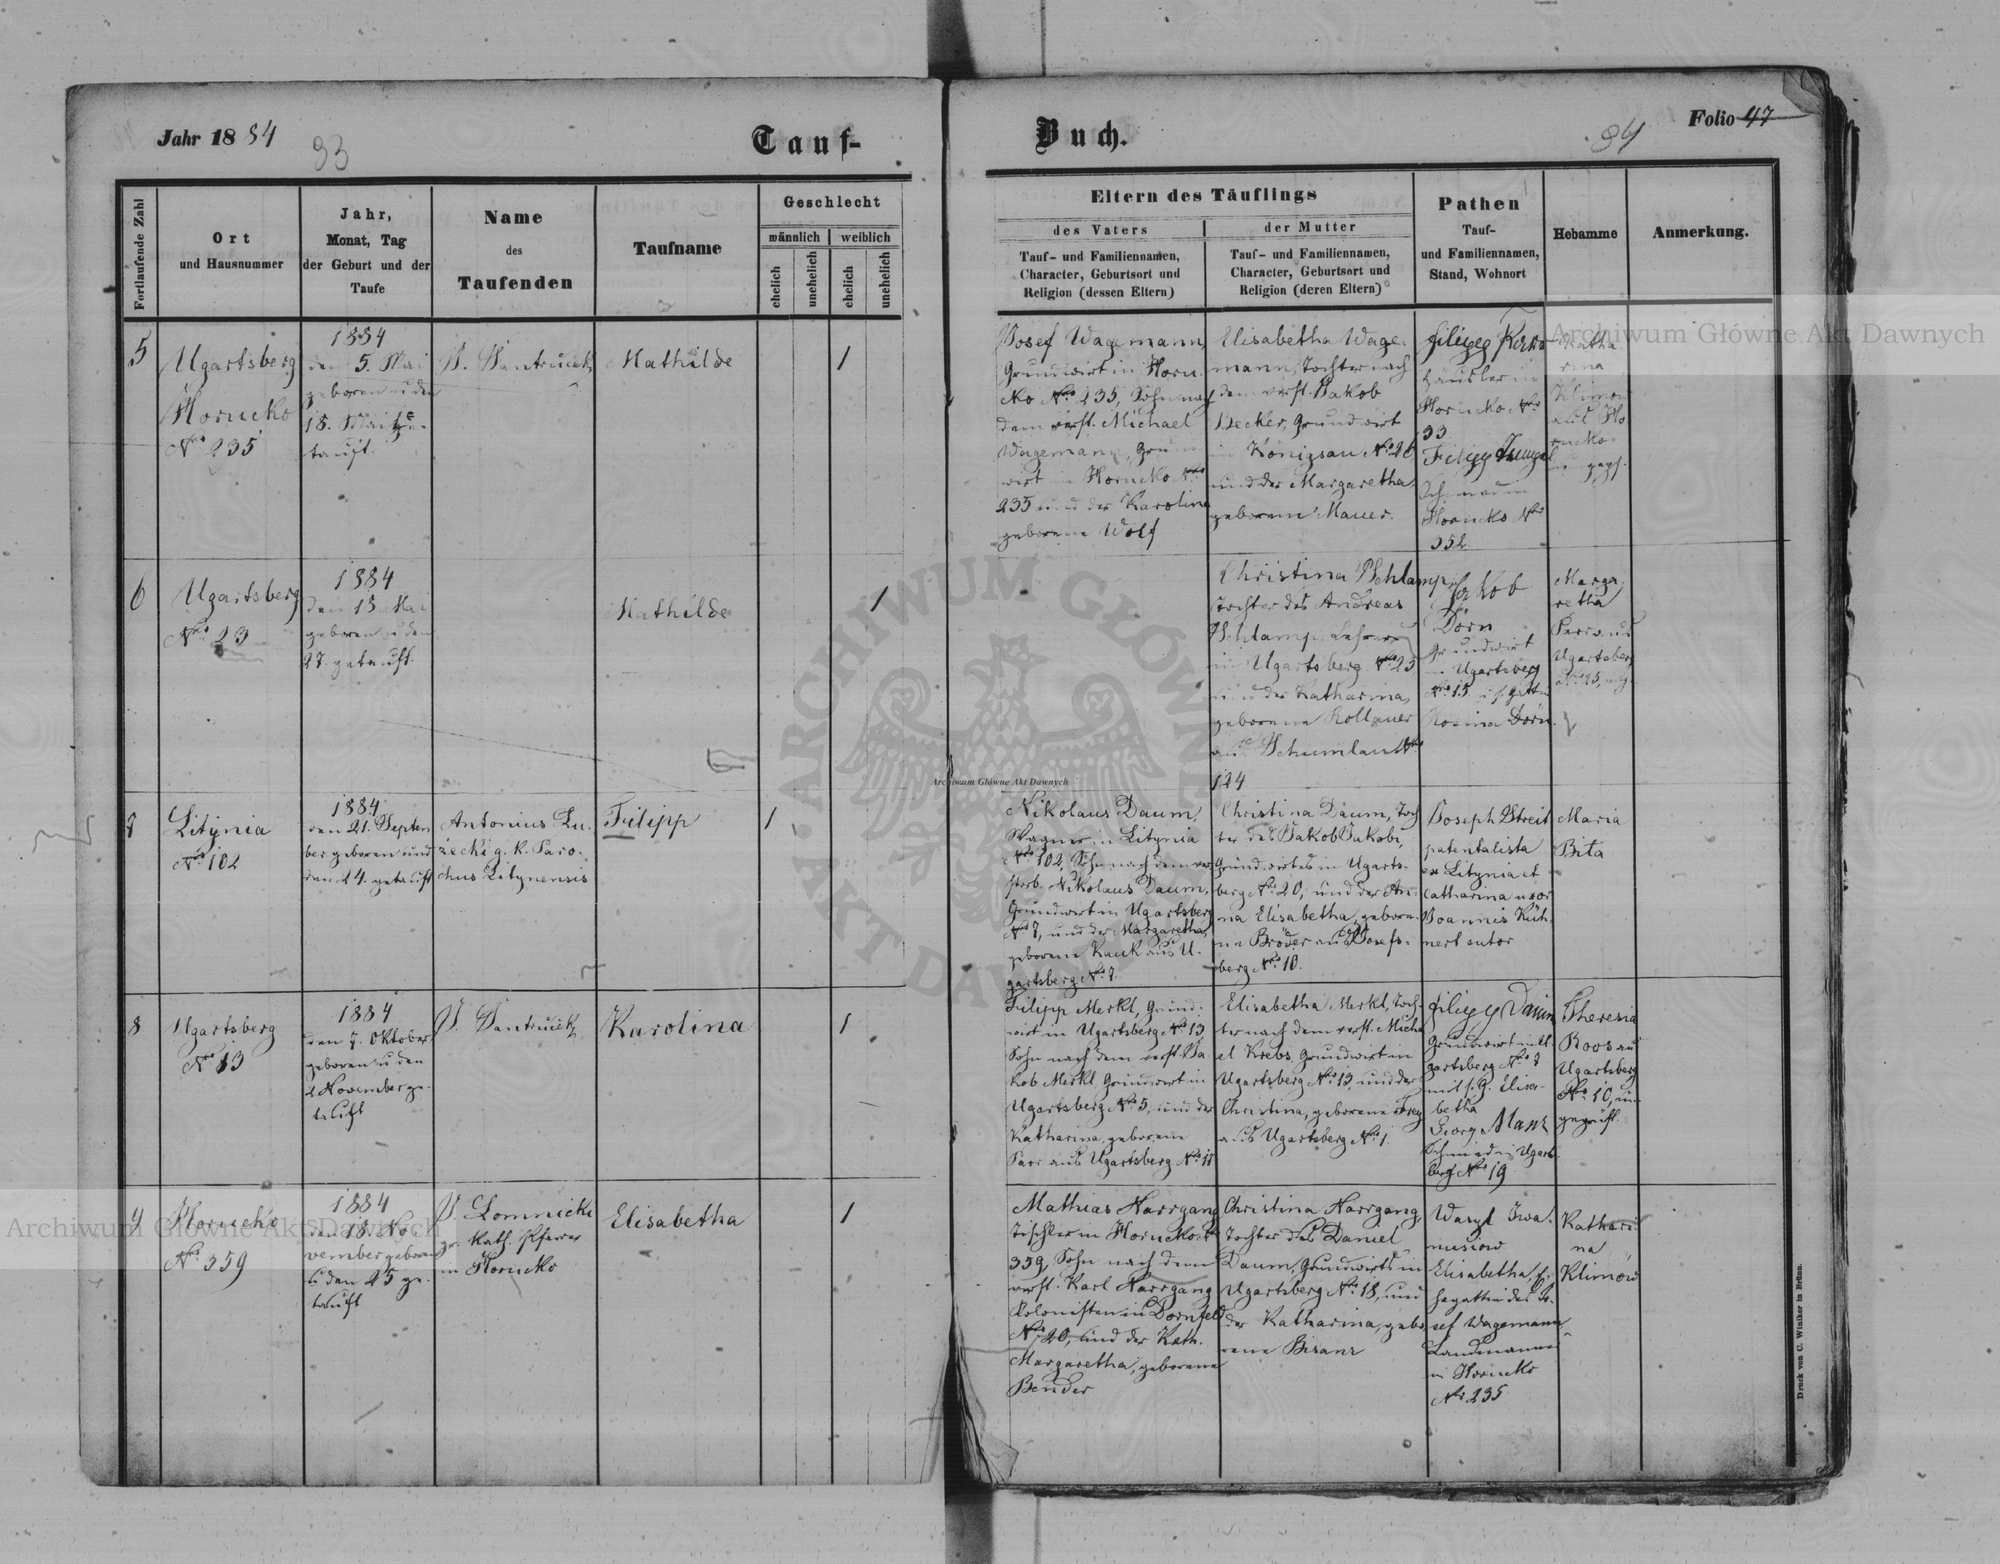 Jahr 1884
93
Tauf-
Buch.
94
Folio 47
Fortlaufende Zahl
Ort
und Hausnummer
Jahr,
Monat, Tag
der Geburt und der
Taufe
Name
des
Taufenden
Taufname
Geschlecht
männlich
weiblich
ehelich
unehelich
ehelich
unehelich
Eltern des Täuflings
des Vaters
Tauf- und Familiennamen,
Character, Geburtsort und
Religion (dessen Eltern)
der Mutter
Tauf- und Familiennamen,
Character, Geburtsort und
Religion (deren Eltern)
Pathen
Tauf-
und Familiennamen,
Stand, Wohnort
Hebamme
Anmerkung.
5
Ugartsberg
Horucko
Nro 235
1884
den 5. Mai
geboren u den
18. Mai ge-
tauft.
Mathilde
1
Josef Wagemann,
Grundwirt in Horu-
cko Nro 235, Sohn nach
dem verst. Michael
Wagemann, Grund-
wirt in Horucko Nro
235 und der Karolina
geborene Wolf
Elisabetha Wage-
mann, Tochter nach
dem verst. Jakob
Becker, Grundwirt
in Königsau Nro 26
und der Margaretha
geborene Mauer.
Häusler in
Horucko Nro
33
Filipp
Schmied in
Horucko Nro
352
Katha-
rina
Klimow
aus Ho-
rucko.
6
Ugartsberg
Nro 23
1884
den 13 Mai
geboren u den
27. getauft.
Mathilde
1
Christina Schlamp,
Tochter des Andreas
Schlamp, Lehrers
in Ugartsberg Nro 23
und der Katharina,
geborene Kollauer
aus Schumlau Nro
124
Jakob
Dorn
Grundwirt
in Ugartsberg
Nro 15
Rosina Dorn.
Marga-
retha
Parr aus
Ugartsberg
7
Litynia
Nro 102
1884
den 21. Septem
ber geboren und
den 24. getauft
Antonius Lu-
zecki g. k. Paro-
chus Litynensis
Filipp
1
Nikolaus Daum,
Wagner in Litynia
Nro 102, Sohn nach dem ver
storb. Nikolaus Daum,
Grundwirt in Ugartsberg
Nro 7, und der Margaretha,
geborene Kauk aus U-
gartsberg Nro 7.
Christina Daum, Toch
ter des Jakob Jakobi,
Grundwirtes in Ugarts-
berg Nro 20, und der An-
na Elisabetha, gebore-
ne Bröder aus Josefs-
berg Nro 10.
Joseph Streit
patentalista
ex Litynia et
Catharina uxor
Joannis Küh-
nert sutor
Maria
Bita
8
Ugartsberg
Nro 13
1884
den 7. Oktober
geboren u den
2 November ge-
tauft
Karolina
1
Filipp Merkl, Grund-
wirt in Ugartsberg Nro 13
Sohn nach dem verst. Ja-
kob Merkl Grundwirt in
Ugartsberg Nro 5, und der
Katharina, geborene
Parr aus Ugartsberg Nro 11
Elisabetha Merkl, Toch-
ter nach dem verst. Micha
el Krebs, Grundwirt in
Ugartsberg Nro 13, und der
Christina, geborene Frey
aus Ugartsberg Nro 1.
Filipp Daum
Grundwirt in U
gartsberg Nro 7
mit s. G. Elisa-
betha
Georg Manz
Schmied in Ugarts-
berg Nro 19
Theresia
Roos aus
Ugartsberg
Nro 10, un-
geprüft.
9
Horucko
Nro 359
1884
den 18. No-
vember geboren
u den 25 ge-
tauft
J. Lomnicki
gr. kath. Pfarrer
in Horucko
Elisabetha
1
Mathias Harrgang
Tischler in Horucko Nro
359, Sohn nach dem
verst. Karl Harrgang
Kolonisten in Dornfeld
Nro 20, und der Kath.
Margaretha, geborene
Bender
Christina Harrgang,
Tochter des Daniel
Daum, Grundwirts in
Ugartsberg Nro 18, und
der Katharina, gebo
rene Bisanz
Wasyl Iwa-
nusiow
Elisabetha, E-
hegattin des Jo-
sef Wagemann
Landmannes
in Horucko
Nro 235
Kathari-
na
Klimow
Druck von C. Winiker in Brünn.
Archiwum Główne Akt Dawnych
Archiwum Główne Akt Dawnych
Archiwum Główne Akt Dawnych
ARCHIWUM GŁÓWNE AKT DAWNYCH